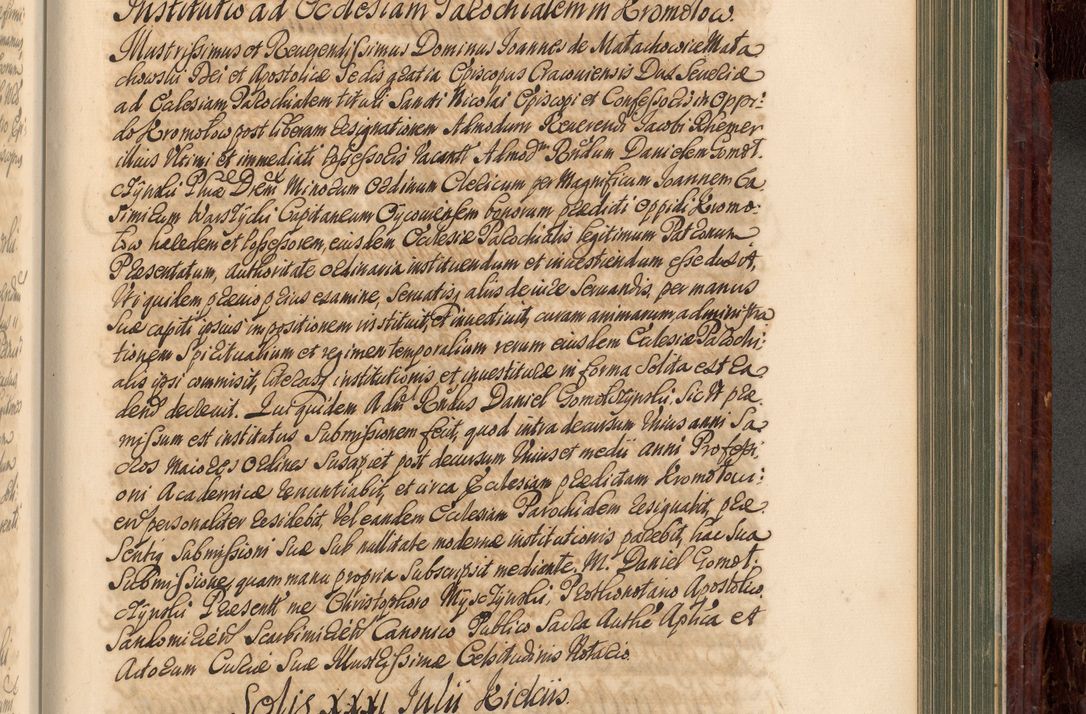 Institutio ad Ecclesiam Parochialem in Kromołow.
Illustrissimus et Reuerendissimus Dominus Joannes de Małachowice Mała
chowski Dei et Apostolicæ Sedis gratia Episcopus Cracouiensis Dux Seueriæ
ad Ecclesiam Parochialem tituli Sancti Nicolai Episcopi et Confessoris in Oppi:
do Kromołow post liberam resignationem Admodum Reuerendi Jacobi Rhemer
illius Vltimi et immediati Possessoris Vacantem Admodm Rndum Danielem Gomół.
czynski Phiæ Drem Minorum Ordinum Clericum per Magnificum Joannem Ca
simirum Warszycki Capitaneum Oycouiensem bonorum prædicti oppidi Kromo:
łow hæredem et Possessorem, eiusdem Ecclesiæ Parochialis legitimum Patronum
Præsentatum, authoritate ordinaria instituendum et inuestiendum esse duxit,
Vti quidem prævio prius examine, seruatisq aliis de iure seruandis, per manus
suæ capiti ipsius impositionem instituit, et inuestiuit, curam animarum, administra
tionem Spiritualium et regimen temporalium rerum eiusdem Ecclesiæ Parochi:
alis ipsi commisit, literasq institutionis et inuestituræ in forma Solita est Ea
dem decreuit. Qui quidem Adm Rndus Daniel Gomołczynski, Sic Vt præ
missum est institutus Submissionem fecit, quod intra decursum Vnius anni Sa
cros Maiores Ordines Suscipiet post decursum Vnius et medii anni Professi
oni Academicæ renuntiabit, et circa Ecclesiam prædictam Kromołoui:
en personaliter residebit, Vel eandem Ecclesiam Parochialem resignabit, præ
sentiq Submissioni Suæ Sub nullitate modernæ institutionis parebit, hac Sua
Submissione, quam manu propria Subscripsit mediante. M. Daniel Gomół:
czynski Præsente me Christophoro Myszczynski, Prothonotario Apostolico,
Sandomirien Scarbimirien Canonico Publico Sacra Authe Aplica et
Actorum Curiæ Suæ Illustrissimæ Celsitudinis Notario.
Solis XXXI Julii Kielciis.